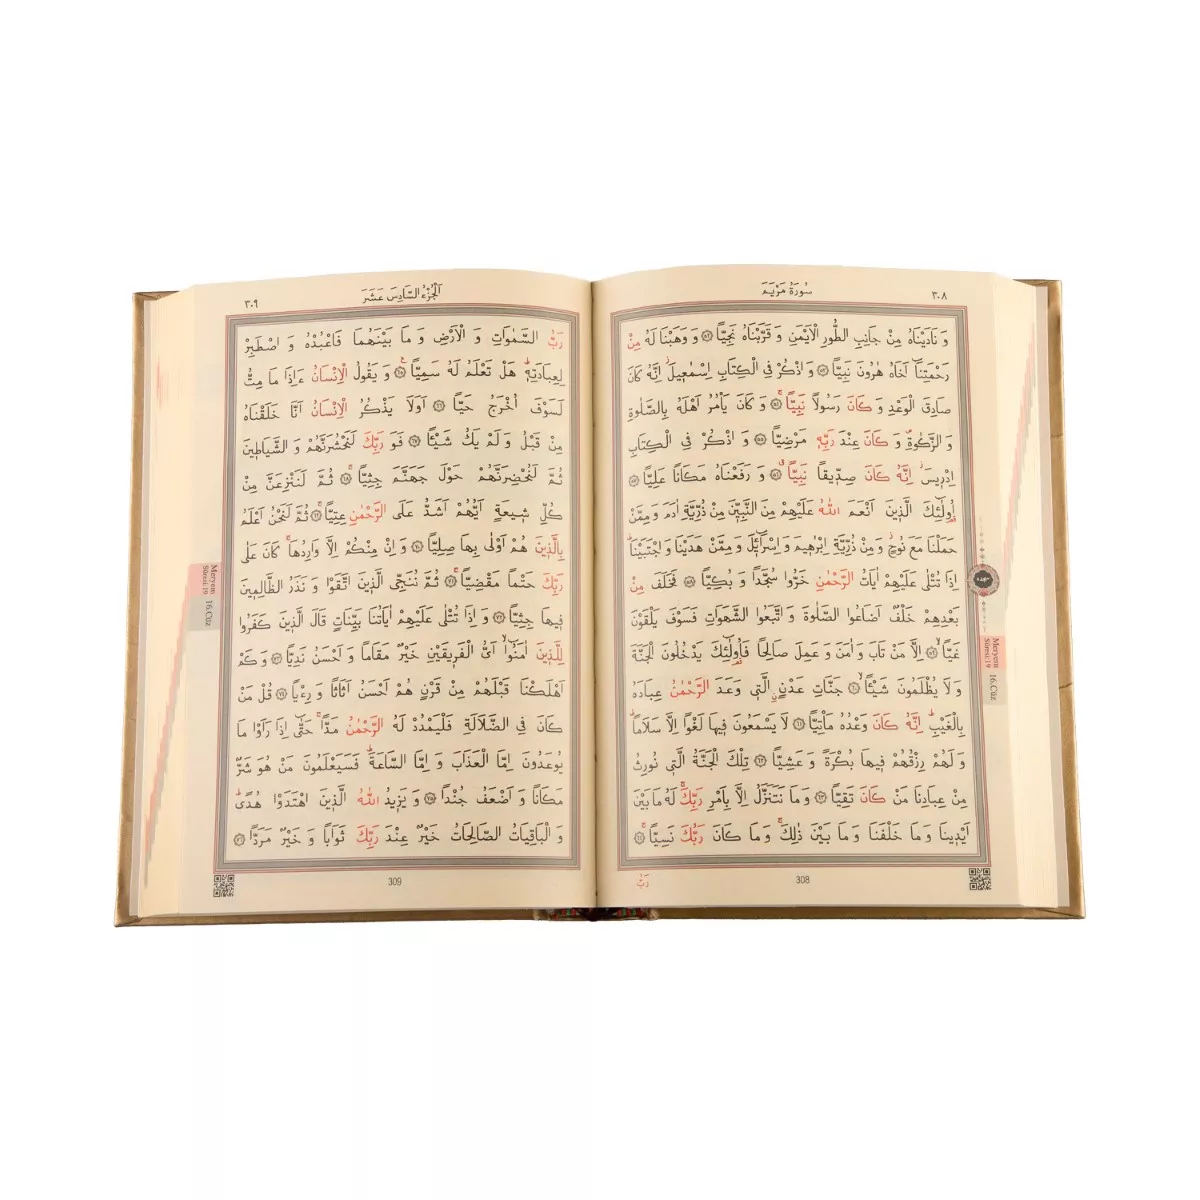 ٣٠٨
سُورَةُ مَرْيَمَ
وَ نَادَيْنَاهُ مِنْ جَانِبِ الطُّورِ الْاَيْمَنِ وَ قَرَّبْنَاهُ نَجِيًّا ﴿٥٢﴾ وَ وَهَبْنَا لَهُ مِنْ
رَحْمَتِنَا اَخَاهُ هٰرُونَ نَبِيًّا ﴿٥٣﴾ وَ اذْكُرْ فِي الْكِتَابِ اِسْمٰعِيلَ اِنَّهُ كَانَ
صَادِقَ الْوَعْدِ وَ كَانَ رَسُولًا نَبِيًّا ﴿٥٤﴾ وَ كَانَ يَأْمُرُ اَهْلَهُ بِالصَّلٰوةِ
وَ الزَّكٰوةِ وَ كَانَ عِنْدَ رَبِّهِ مَرْضِيًّا ﴿٥٥﴾ وَ اذْكُرْ فِي الْكِتَابِ
اِدْرِيسَ اِنَّهُ كَانَ صِدِّيقًا نَبِيًّا ﴿٥٦﴾ وَ رَفَعْنَاهُ مَكَانًا عَلِيًّا ﴿٥٧﴾
اُولٰئِكَ الَّذِينَ اَنْعَمَ اللّٰهُ عَلَيْهِمْ مِنَ النَّبِيِّنَ مِنْ ذُرِّيَّةِ اٰدَمَ وَ مِمَّنْ
حَمَلْنَا مَعَ نُوحٍ وَ مِنْ ذُرِّيَّةِ اِبْرٰهِيمَ وَ اِسْرَائِلَ وَ مِمَّنْ هَدَيْنَا وَ اجْتَبَيْنَا
اِذَا تُتْلٰى عَلَيْهِمْ اٰيَاتُ الرَّحْمٰنِ خَرُّوا سُجَّدًا وَ بُكِيًّا ﴿٥٨﴾ فَخَلَفَ مِنْ
بَعْدِهِمْ خَلْفٌ اَضَاعُوا الصَّلٰوةَ وَ اتَّبَعُوا الشَّهَوَاتِ فَسَوْفَ يَلْقَوْنَ
غَيًّا ﴿٥٩﴾ اِلَّا مَنْ تَابَ وَ اٰمَنَ وَ عَمِلَ صَالِحًا فَاُولٰئِكَ يَدْخُلُونَ الْجَنَّةَ
وَ لَا يُظْلَمُونَ شَيْـًٔا ﴿٦٠﴾ جَنَّاتِ عَدْنٍ الَّتِي وَعَدَ الرَّحْمٰنُ عِبَادَهُ
بِالْغَيْبِ اِنَّهُ كَانَ وَعْدُهُ مَأْتِيًّا ﴿٦١﴾ لَا يَسْمَعُونَ فِيهَا لَغْوًا اِلَّا سَلَامًا
وَ لَهُمْ رِزْقُهُمْ فِيهَا بُكْرَةً وَ عَشِيًّا ﴿٦٢﴾ تِلْكَ الْجَنَّةُ الَّتِي نُورِثُ
مِنْ عِبَادِنَا مَنْ كَانَ تَقِيًّا ﴿٦٣﴾ وَ مَا نَتَنَزَّلُ اِلَّا بِاَمْرِ رَبِّكَ لَهُ مَا بَيْنَ
اَيْدِينَا وَ مَا خَلْفَنَا وَ مَا بَيْنَ ذٰلِكَ وَ مَا كَانَ رَبُّكَ نَسِيًّا ﴿٦٤﴾
رَبُّ
308
سجده
Meryem
Sûresi:19
16.Cüz
اَلْجُزْءُ السَّادِسَ عَشَرَ
٣٠٩
رَبُّ السَّمٰوَاتِ وَ الْاَرْضِ وَ مَا بَيْنَهُمَا فَاعْبُدْهُ وَ اصْطَبِرْ
لِعِبَادَتِهِ هَلْ تَعْلَمُ لَهُ سَمِيًّا ﴿٦٥﴾ وَ يَقُولُ الْاِنْسَانُ ءَاِذَا مَا مِتُّ
لَسَوْفَ اُخْرَجُ حَيًّا ﴿٦٦﴾ اَوَلَا يَذْكُرُ الْاِنْسَانُ اَنَّا خَلَقْنَاهُ
مِنْ قَبْلُ وَ لَمْ يَكُ شَيْـًٔا ﴿٦٧﴾ فَوَ رَبِّكَ لَنَحْشُرَنَّهُمْ وَ الشَّيَاطِينَ
ثُمَّ لَنُحْضِرَنَّهُمْ حَوْلَ جَهَنَّمَ جِثِيًّا ﴿٦٨﴾ ثُمَّ لَنَنْزِعَنَّ مِنْ
كُلِّ شِيعَةٍ اَيُّهُمْ اَشَدُّ عَلَى الرَّحْمٰنِ عِتِيًّا ﴿٦٩﴾ ثُمَّ لَنَحْنُ اَعْلَمُ
بِالَّذِينَ هُمْ اَوْلٰى بِهَا صِلِيًّا ﴿٧٠﴾ وَ اِنْ مِنْكُمْ اِلَّا وَارِدُهَا كَانَ عَلٰى
رَبِّكَ حَتْمًا مَقْضِيًّا ﴿٧١﴾ ثُمَّ نُنَجِّي الَّذِينَ اتَّقَوْا وَ نَذَرُ الظَّالِمِينَ
فِيهَا جِثِيًّا ﴿٧٢﴾ وَ اِذَا تُتْلٰى عَلَيْهِمْ اٰيَاتُنَا بَيِّنَاتٍ قَالَ الَّذِينَ كَفَرُوا
لِلَّذِينَ اٰمَنُوا اَيُّ الْفَرِيقَيْنِ خَيْرٌ مَقَامًا وَ اَحْسَنُ نَدِيًّا ﴿٧٣﴾ وَ كَمْ
اَهْلَكْنَا قَبْلَهُمْ مِنْ قَرْنٍ هُمْ اَحْسَنُ اَثَاثًا وَ رِءْيًا ﴿٧٤﴾ قُلْ مَنْ
كَانَ فِي الضَّلَالَةِ فَلْيَمْدُدْ لَهُ الرَّحْمٰنُ مَدًّا حَتّٰى اِذَا رَاَوْا مَا
يُوعَدُونَ اِمَّا الْعَذَابَ وَ اِمَّا السَّاعَةَ فَسَيَعْلَمُونَ مَنْ هُوَ شَرٌّ
مَكَانًا وَ اَضْعَفُ جُنْدًا ﴿٧٥﴾ وَ يَزِيدُ اللّٰهُ الَّذِينَ اهْتَدَوْا هُدًى
وَ الْبَاقِيَاتُ الصَّالِحَاتُ خَيْرٌ عِنْدَ رَبِّكَ ثَوَابًا وَ خَيْرٌ مَرَدًّا ﴿٧٦﴾
309
Meryem
Sûresi:19
16.Cüz